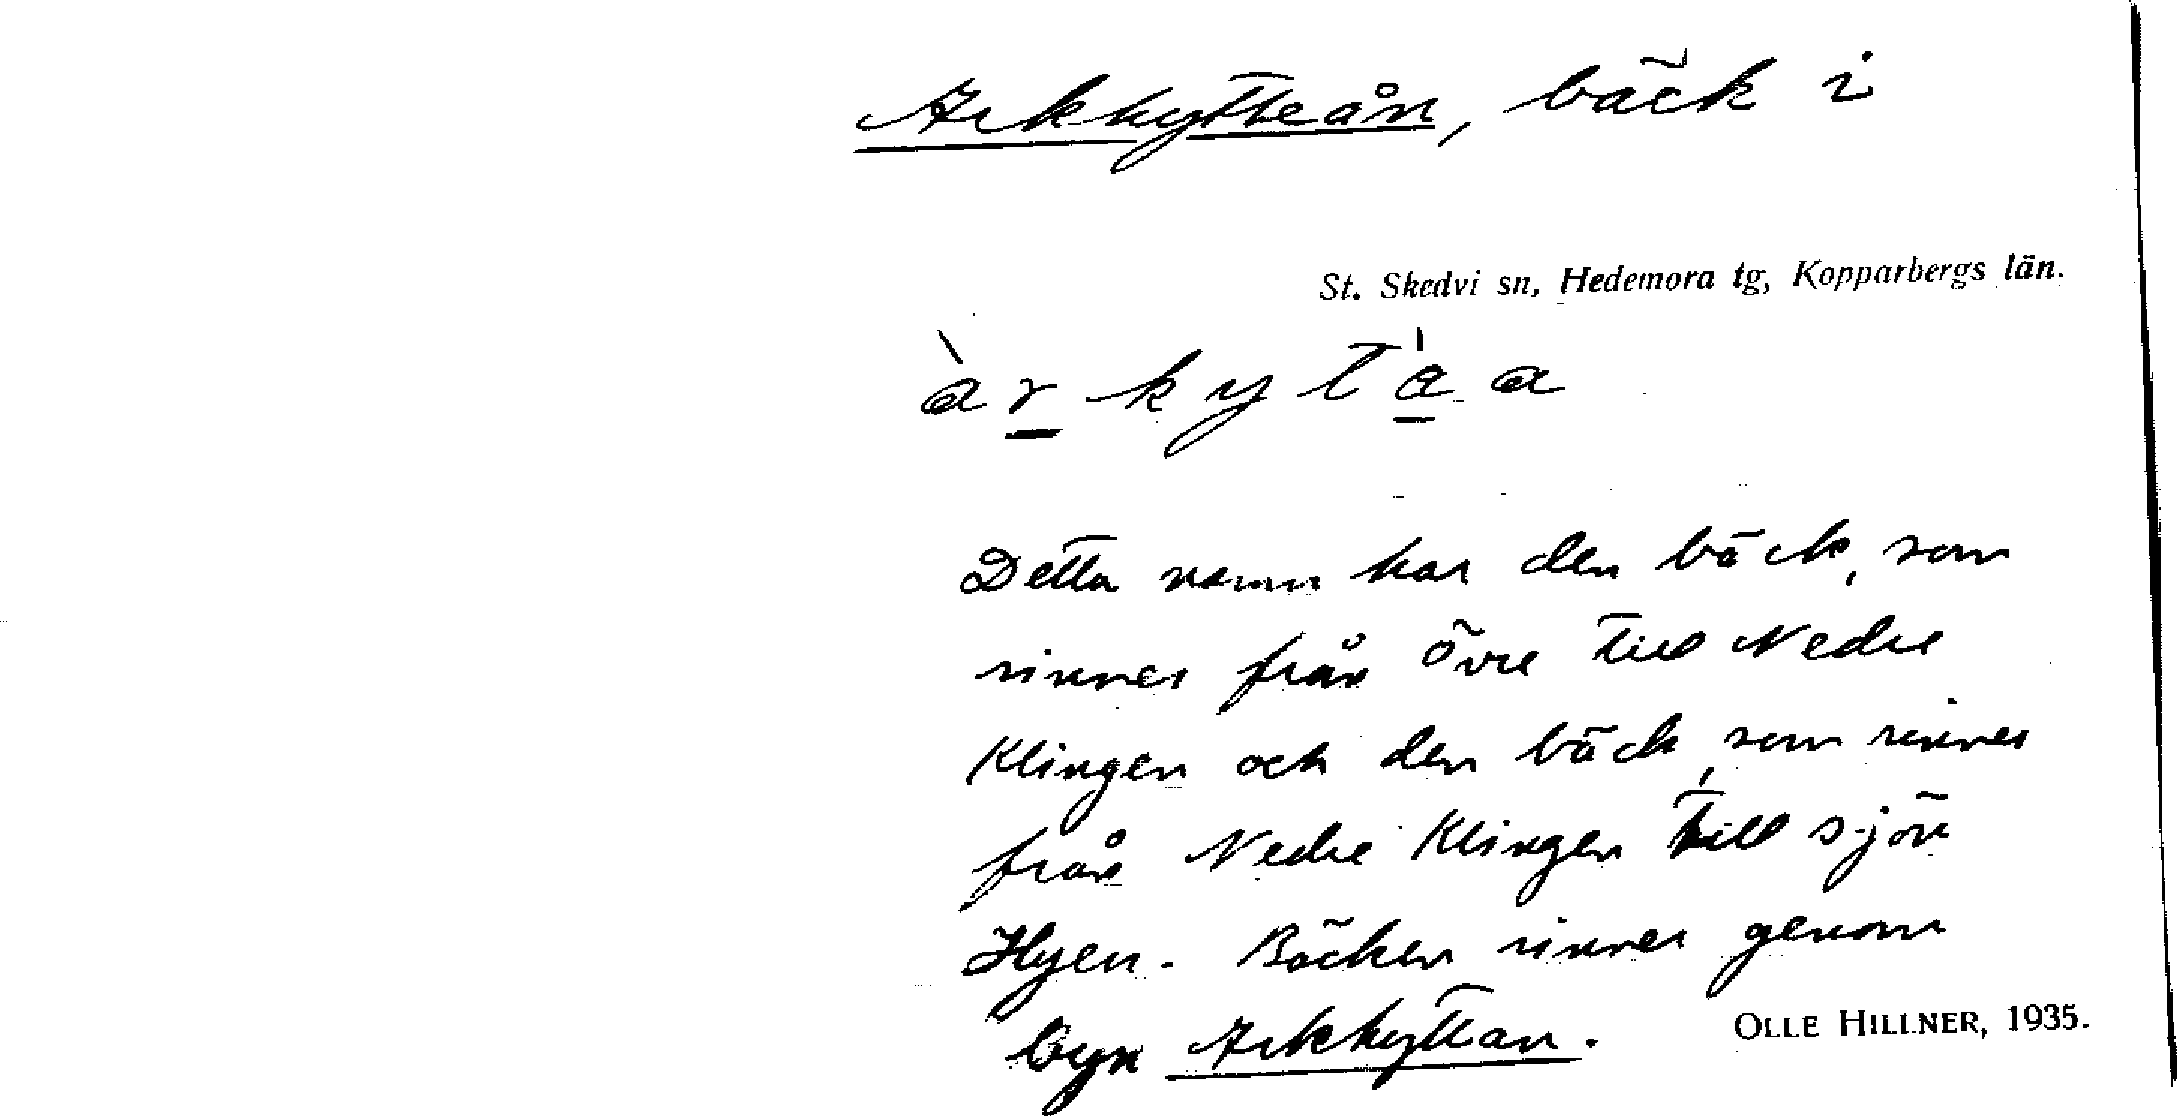 Arkhytteån, bäck i
St. Skedvi sn, Hedemora tg, Kopparbergs län.
àr kyt'a a
Detta namn har den bäck, som
rinner från Övre till Nedre
Klingen och den bäck, som rinner
från Nedre Klingen till sjön
Hyen. Bäcken rinner genom
byn Arkhyttan.
OLLE HILLNER, 1935.